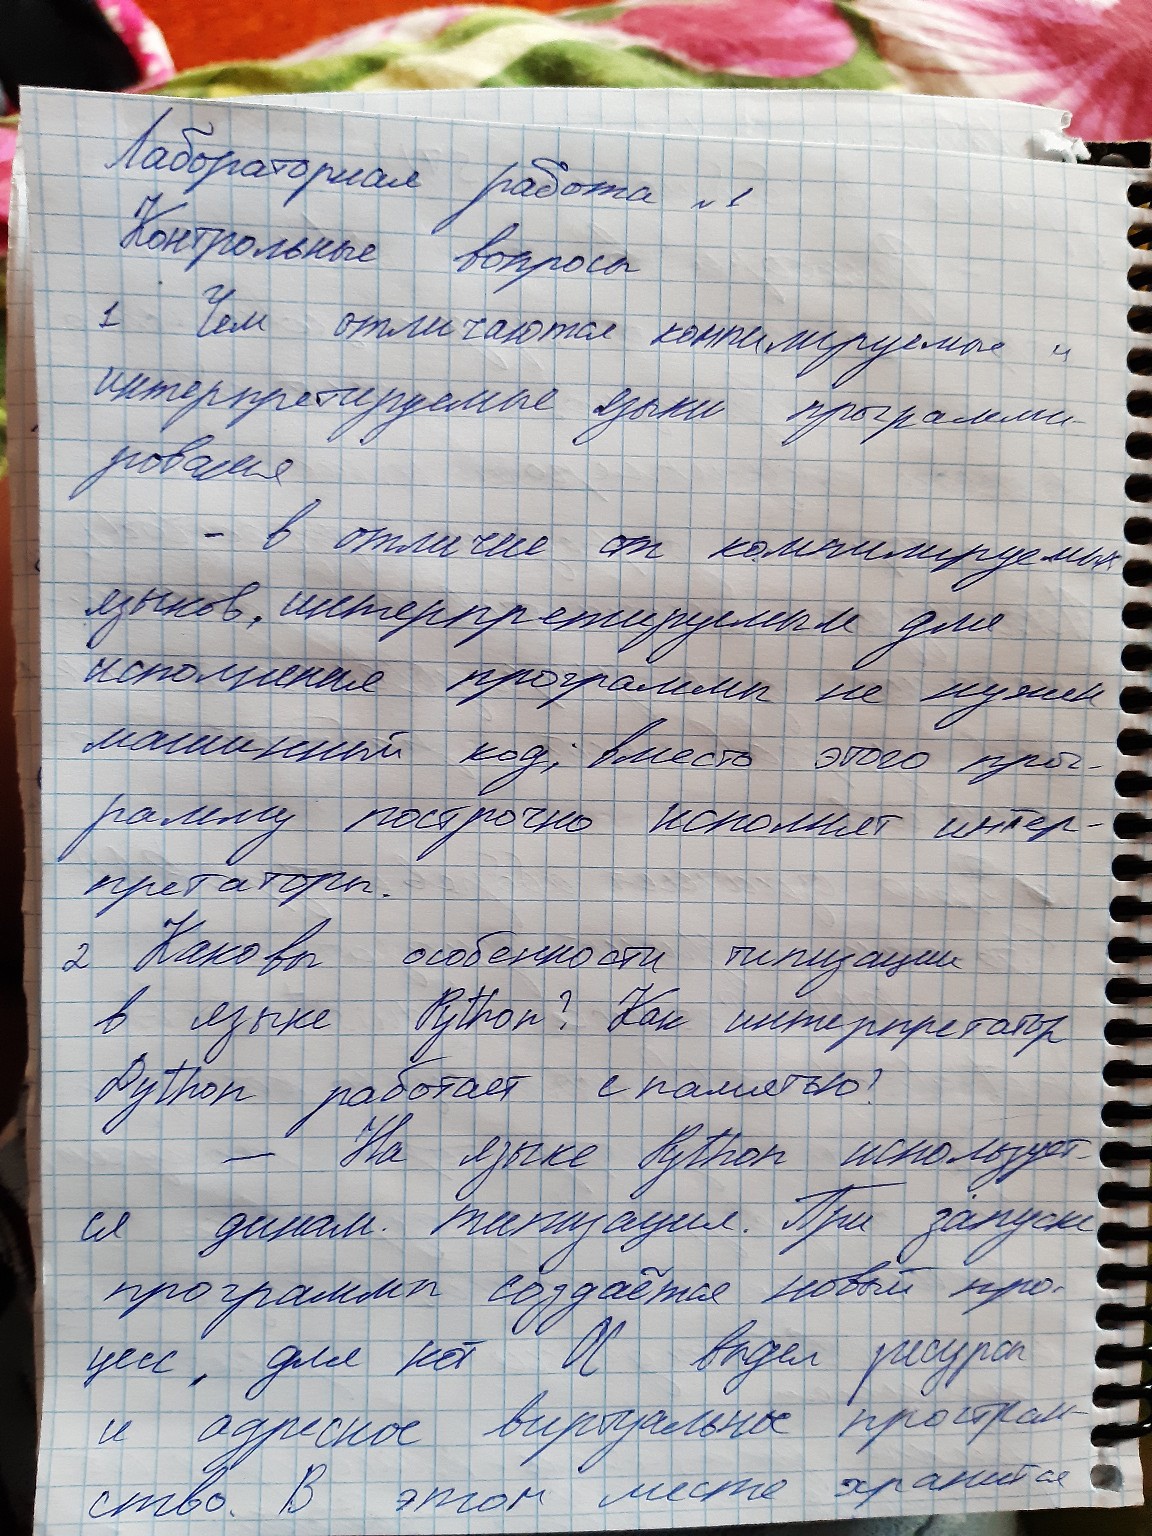 Лабораторная работа №1
Контрольные вопросы
1 Чем отличаются компилируемые и
интерпретируемые языки программи-
рования
- в отличие от компилируемых
языков, интерпретируемым для
исполнения программы не нужен
машинный код; вместо этого прог-
рамму построчно исполняет интер-
претаторы.
2 Каковы особенности типизации
в языке Python? Как интерпретатор
Python работает с памятью?
— На языке Python использует-
ся динам. типизация. При запуске
программы создаётся новый про-
цесс, для кот выдел ресурсы
и адресное виртуальное простран-
ство. В этом месте хранится